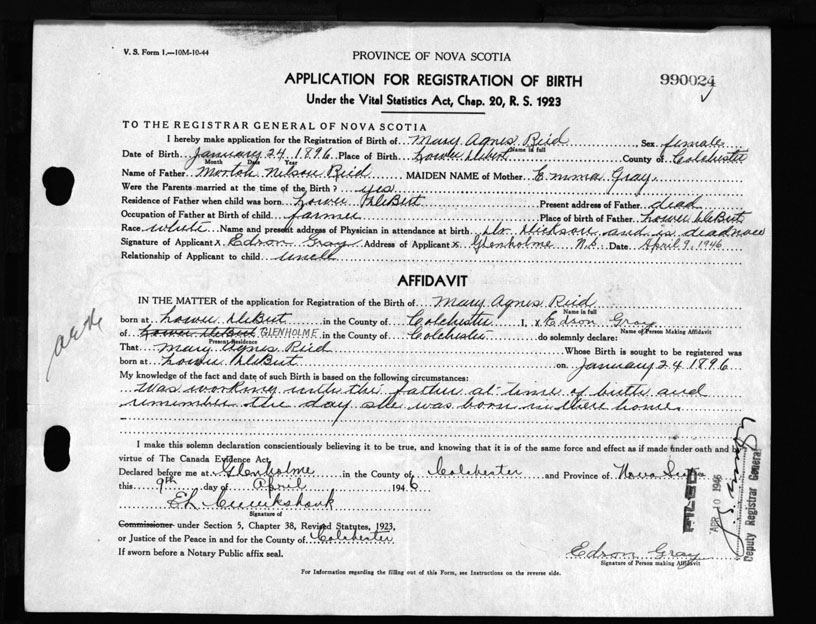 V. S. Form 1.—10M-10-44
PROVINCE OF NOVA SCOTIA
APPLICATION FOR REGISTRATION OF BIRTH
990024
Under the Vital Statistics Act, Chap. 20, R. S. 1923
TO THE REGISTRAR GENERAL OF NOVA SCOTIA
I hereby make application for the Registration of Birth of Mary Agnes Reid Sex female
Name in full
Date of Birth January 24 1896 Place of Birth Lower DeBert County of Colchester
Month Date Year
Name of Father Morton Nelson Reid MAIDEN NAME of Mother Emma Gray
Were the Parents married at the time of the Birth? yes
Residence of Father when child was born Lower DeBert Present address of Father dead
Occupation of Father at Birth of child farmer Place of birth of Father Lower DeBert
Race white Name and present address of Physician in attendance at birth Dr. Dickson and is dead now
Signature of Applicant x Edson Gray Address of Applicant x Glenholme N.S. Date April 9, 1946
Relationship of Applicant to child uncle
AFFIDAVIT
IN THE MATTER of the application for Registration of the Birth of Mary Agnes Reid
Name in full
born at Lower DeBert in the County of Colchester I, x Edson Gray
Name of Person Making Affidavit
of Lower DeBert GLENHOLME in the County of Colchester do solemnly declare:
Present Residence
That Mary Agnes Reid Whose Birth is sought to be registered was
born at Lower DeBert on January 24 1896
My knowledge of the fact and date of such Birth is based on the following circumstances:
Was working with the father at time of birth and
remember the day she was born in there home.
I make this solemn declaration conscientiously believing it to be true, and knowing that it is of the same force and effect as if made under oath and by
virtue of The Canada Evidence Act.
Declared before me at Glenholme in the County of Colchester and Province of Nova Scotia
this 9th day of April 1946
Signature of
Commissioner under Section 5, Chapter 38, Revised Statutes, 1923,
or Justice of the Peace in and for the County of Colchester
If sworn before a Notary Public affix seal.
Edson Gray
Signature of Person making Affidavit
For Information regarding the filling out of this Form, see Instructions on the reverse side.
FILED
APR 10 1946
Deputy Registrar General